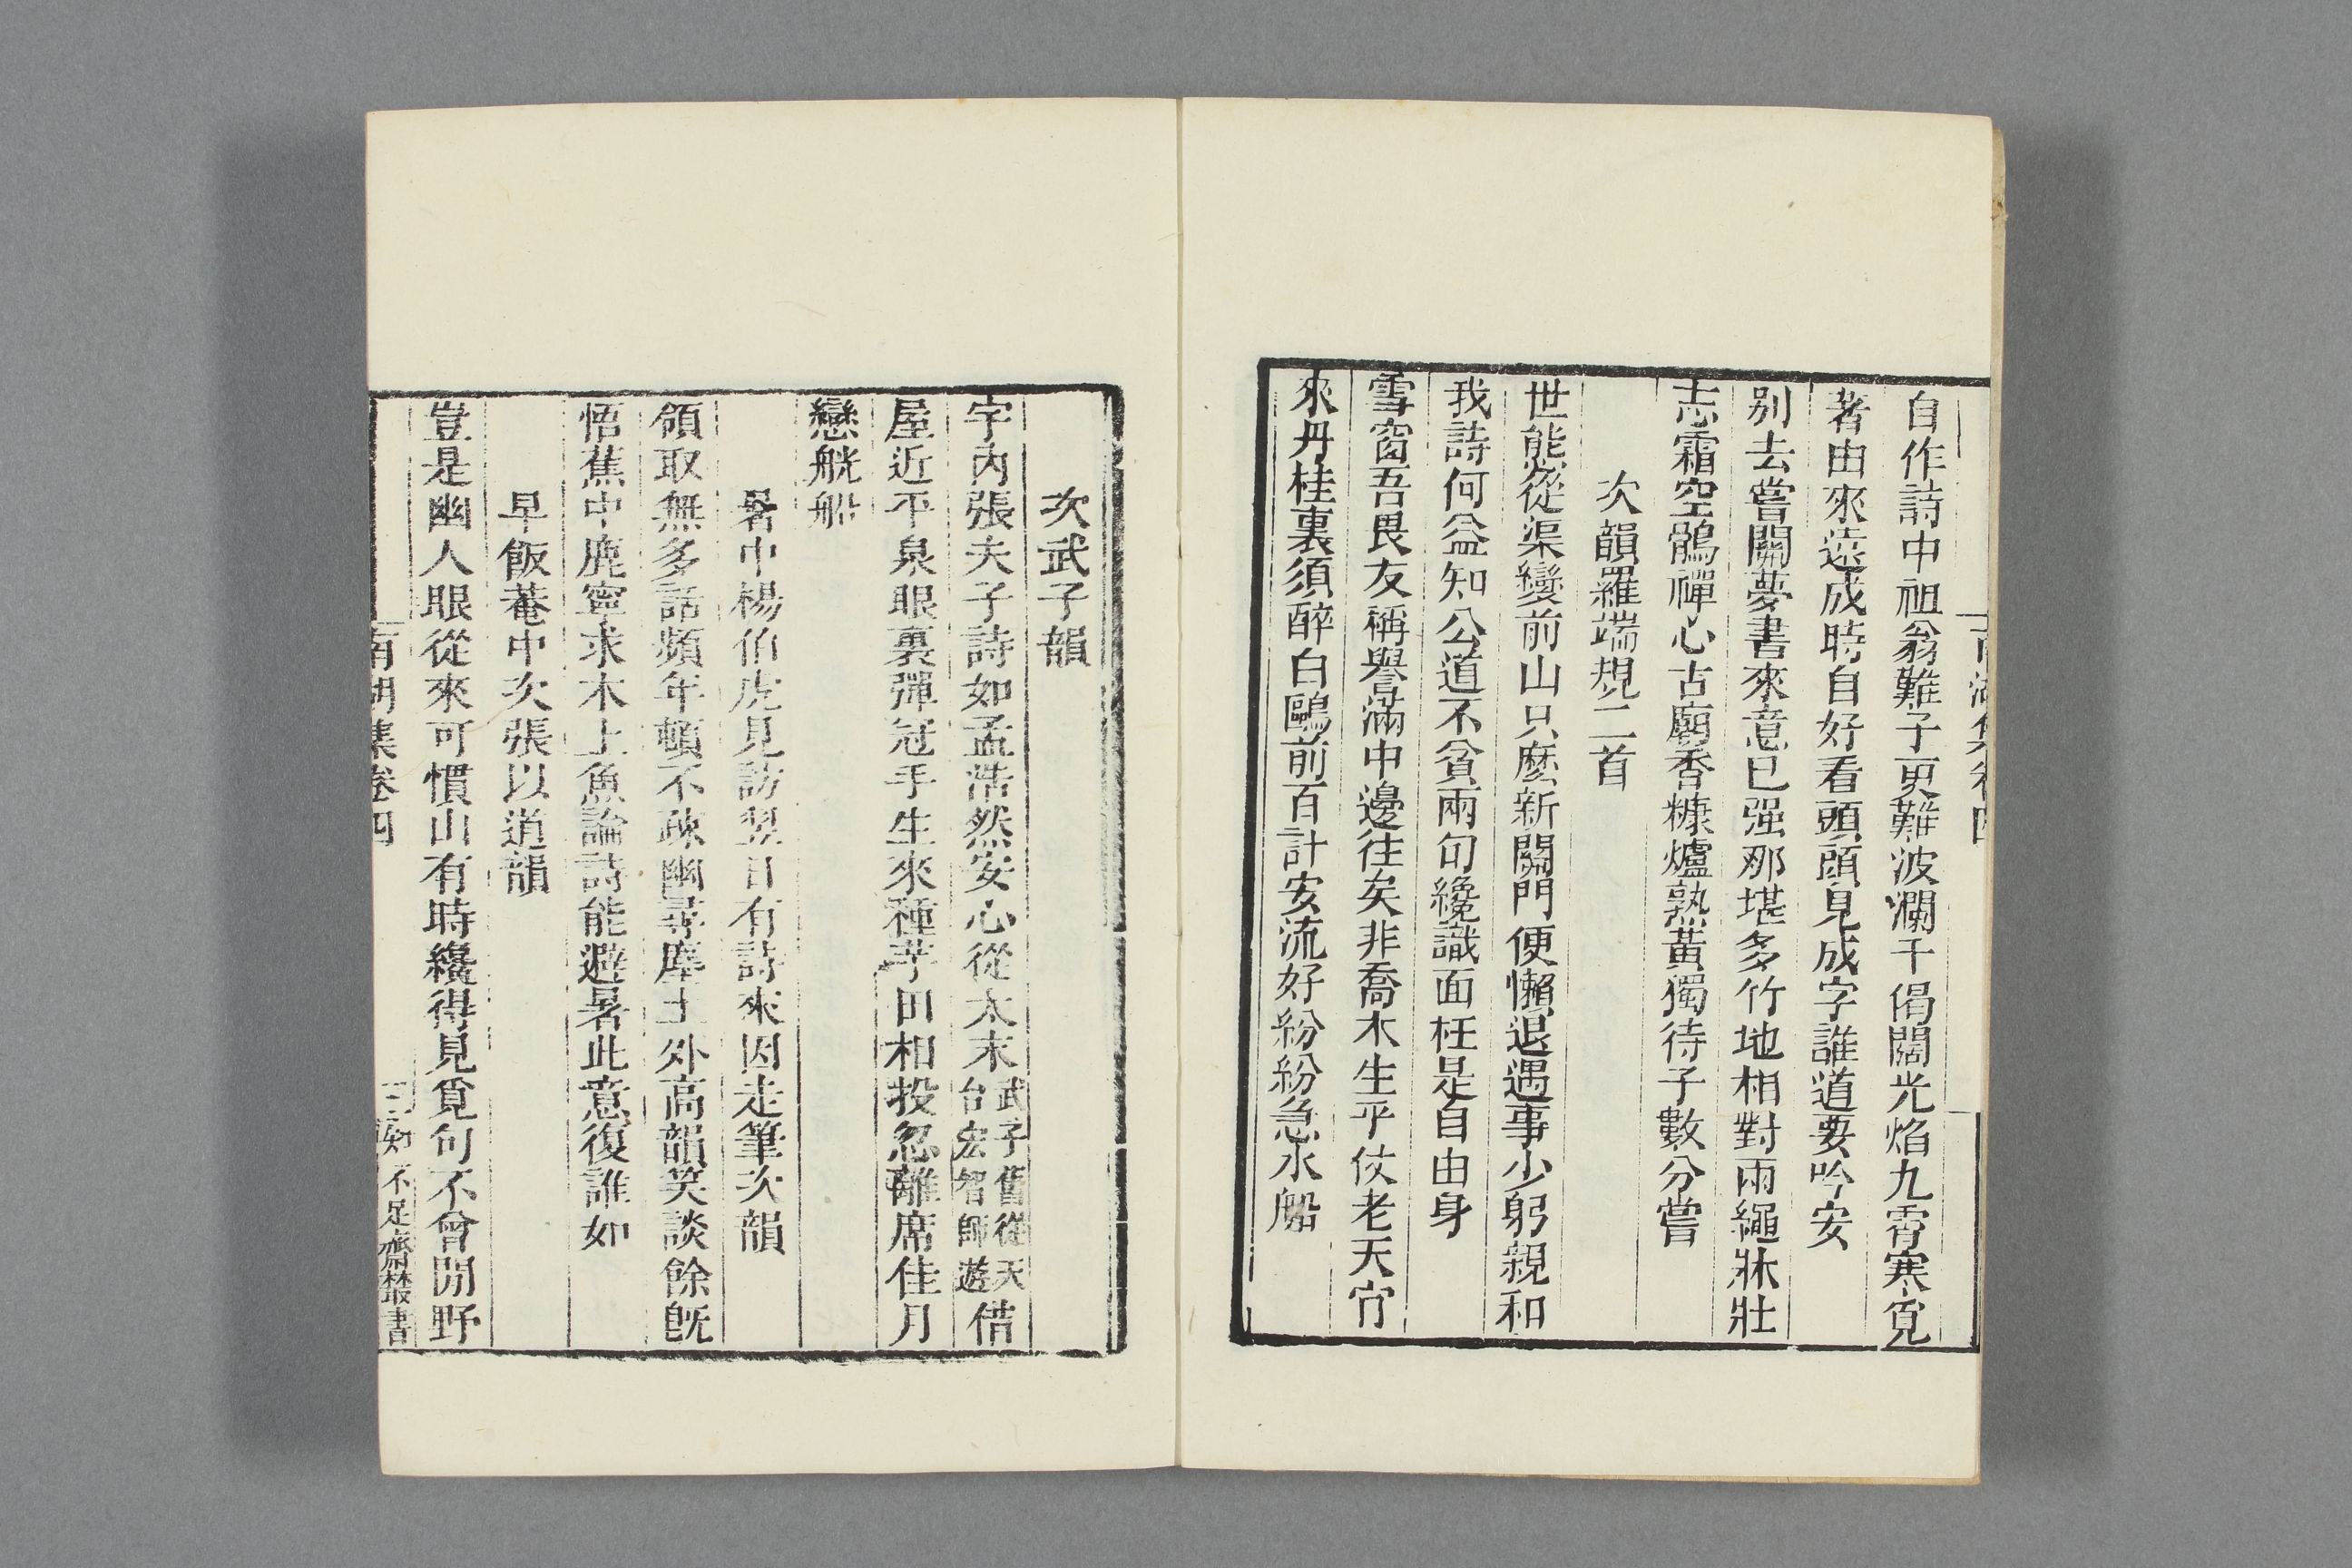 南湖集卷四
自作詩中祖翁難子更難波瀾千偈闊光焰九霄寒覓
著由來遠成時自好看頭頭見成字誰道要吟安
别去嘗關夢書來意已强那堪多竹地相對雨繩牀壯
志霜空鶻禪心古廟香糠爐熟黃獨待子數分嘗
次韻羅端規二首
世態從渠變前山只麽新關門便懶退遇事少躬親和
我詩何益知公道不貧兩句纔識面枉是自由身
雪窗吾畏友稱譽滿中邊往矣非喬木生平仗老天官
來丹桂裏須醉白鷗前百計安流好紛紛急水船
次武子韻
宇內張夫子詩如孟浩然安心從太末武子舊從天台宏智師遊借
屋近平泉眼裏彈冠手生來種芋田相投忽離席佳月
戀觥船
暑中楊伯虎見訪翌日有詩來因走筆次韻
領取無多話頻年頓不疎幽尋塵土外高韻笑談餘旣
悟蕉中鹿寧求木上魚論詩能避暑此意復誰如
早飯菴中次張以道韻
豈是幽人眼從來可慣山有時纔得見覓句不曾閒野
南湖集卷四
三
知不足齋叢書